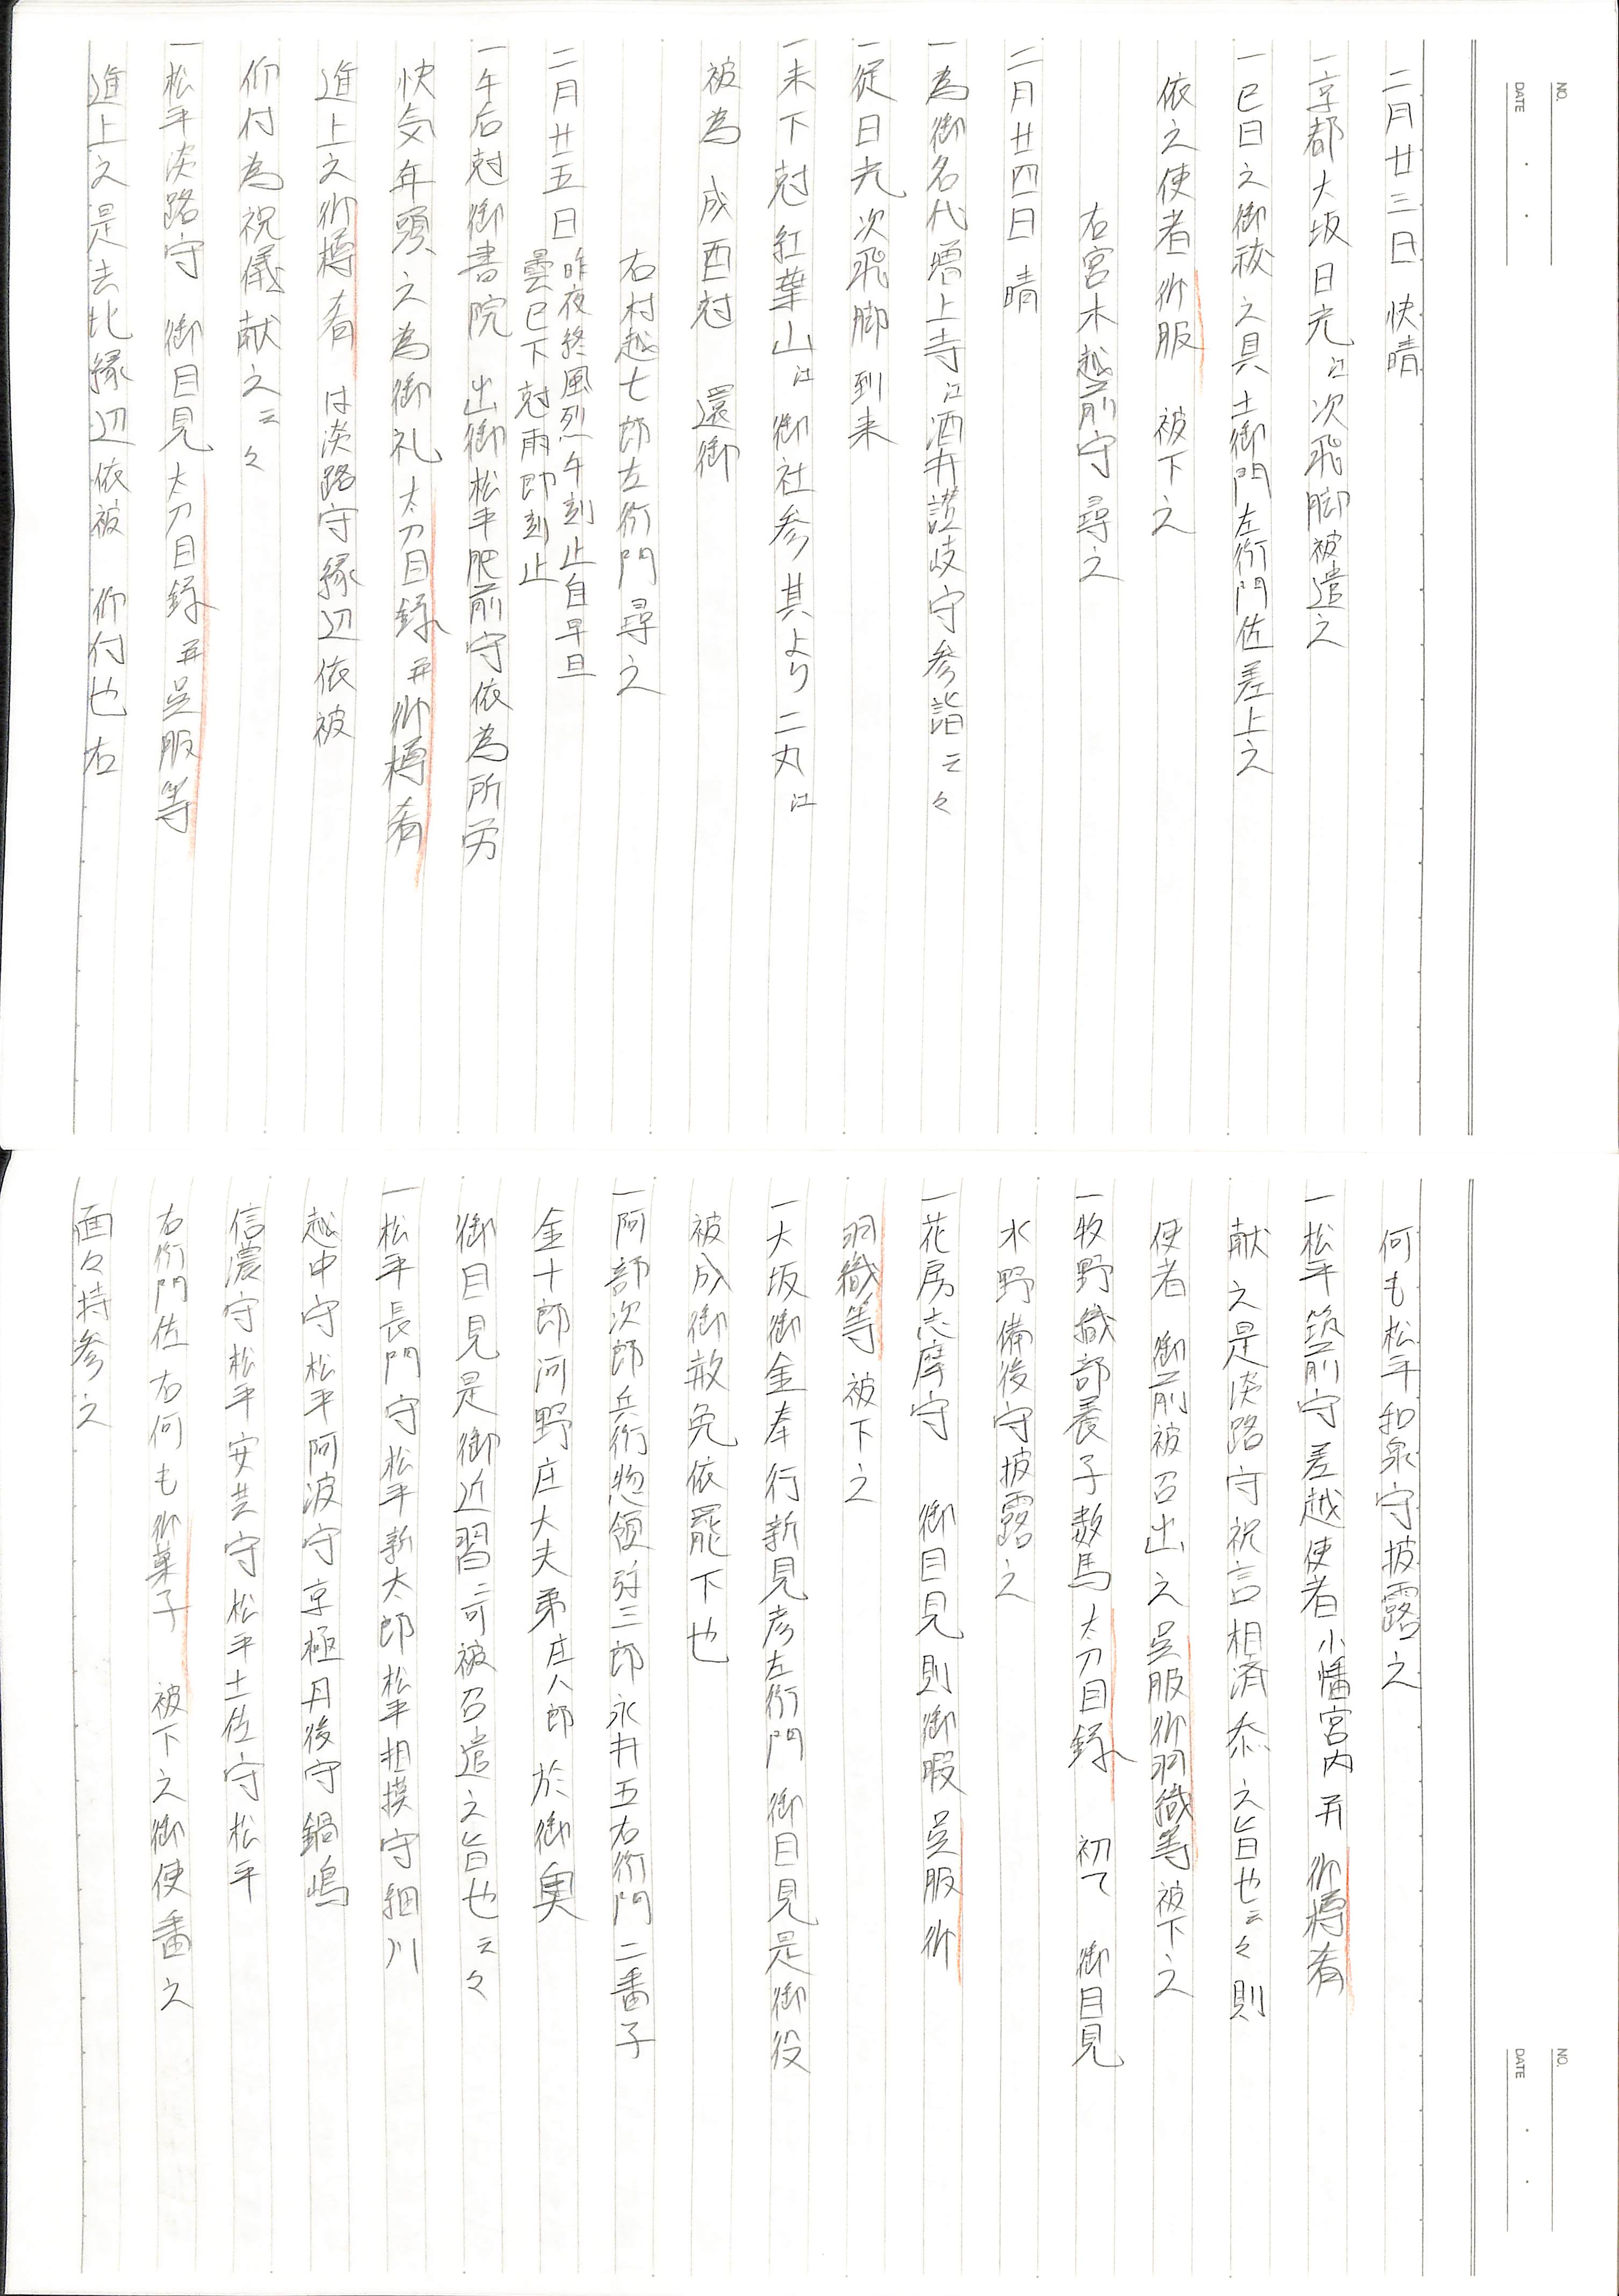 NO.
DATE
二月廿三日 快晴
一京都大坂日光江次飛脚被遣之
一巳日之御祓之具土御門左衛門佐差上之
依之使者御服 被下之
右宮木越前守尋之
二月廿四日 晴
一為御名代増上寺江酒井讃岐守参詣云々
一従日光次飛脚到来
一未下尅紅葉山江御社参其より二丸江
被為 成酉尅 還御
右村越七郎左衛門尋之
二月廿五日 昨夜終風烈午刻止自早旦
曇巳下尅雨即刻止
一午后尅御書院 出御松平肥前守依為所労
快気年頭之為御礼太刀目録并御樽肴
進上之御樽肴 は淡路守縁辺依被
仰付為祝儀献之云々
一松平淡路守 御目見太刀目録并呉服等
進上之是去比縁辺依被 仰付也右
NO.
DATE
何も松平和泉守披露之
一松平筑前守差越使者小幡宮内并御樽肴
献之是淡路守祝言相済忝之旨也云々則
使者 御前被召出之呉服御羽織等被下之
一牧野織部養子数馬太刀目録 初て 御目見
水野備後守披露之
一花房志摩守 御目見則御暇呉服御
羽織等被下之
一大坂御金奉行新見彦左衛門 御目見是御役
被成御赦免依罷下也
一阿部次郎兵衛惣領弥三郎永井五右衛門二番子
金十郎河野庄大夫弟庄八郎於御奥
御目見是御近習ニ可被召遣之旨也云々
一松平長門守松平新太郎松平相摸守細川
越中守松平阿波守京極丹後守鍋嶋
信濃守松平安芸守松平土佐守松平
右衛門佐右何も御菓子 被下之御使番之
面々持参之